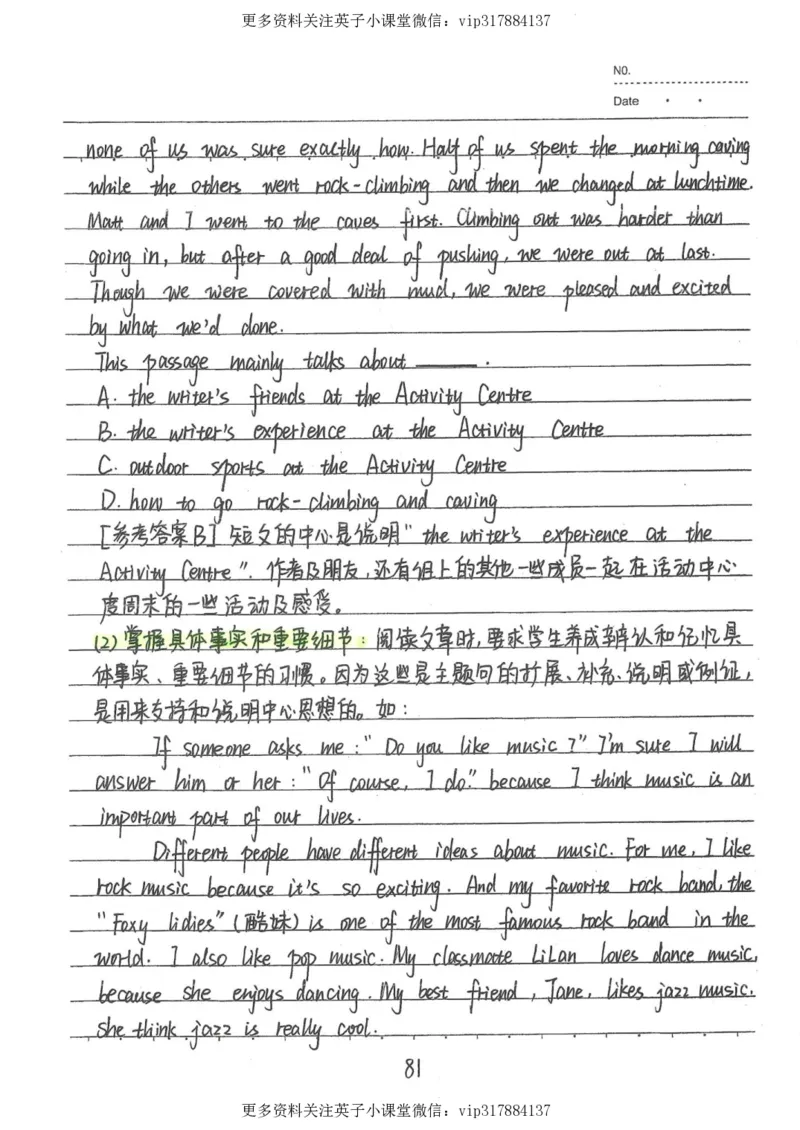 更多资料关注英子小课堂微信：vip317884137
NO.
Date
none of us was sure exactly how. Half of us spent the morning caving
while the others went rock-climbing and then we changed at lunchtime.
Matt and I went to the caves first. Climbing out was harder than
going in, but after a good deal of pushing, we were out at last.
Though we were covered with mud, we were pleased and excited
by what we'd done.
This passage mainly talks about ______.
A. the writer's friends at the Activity Centre
B. the writer's experience at the Activity Centre
C. outdoor sports at the Activity Centre
D. how to go rock-climbing and caving
[参考答案B] 短文的中心是说明"the writer's experience at the
Activity Centre". 作者及朋友,还有组上的其他一些成员一起在活动中心
度周末的一些活动及感受。
(2)掌握具体事实和重要细节: 阅读文章时,要求学生养成辨认和记忆具
体事实、重要细节的习惯。因为这些是主题句的扩展、补充、说明或例证,
是用来支持和说明中心思想的。如:
If someone asks me:"Do you like music?" I'm sure I will
answer him or her:"Of course, I do." because I think music is an
important part of our lives.
Different people have different ideas about music. For me, I like
rock music because it's so exciting. And my favorite rock band, the
"Foxy lidies"(酷妹) is one of the most famous rock band in the
world. I also like pop music. My classmate LiLan loves dance music,
because she enjoys dancing. My best friend, Jane, likes jazz music.
She think jazz is really cool.
81
更多资料关注英子小课堂微信：vip317884137